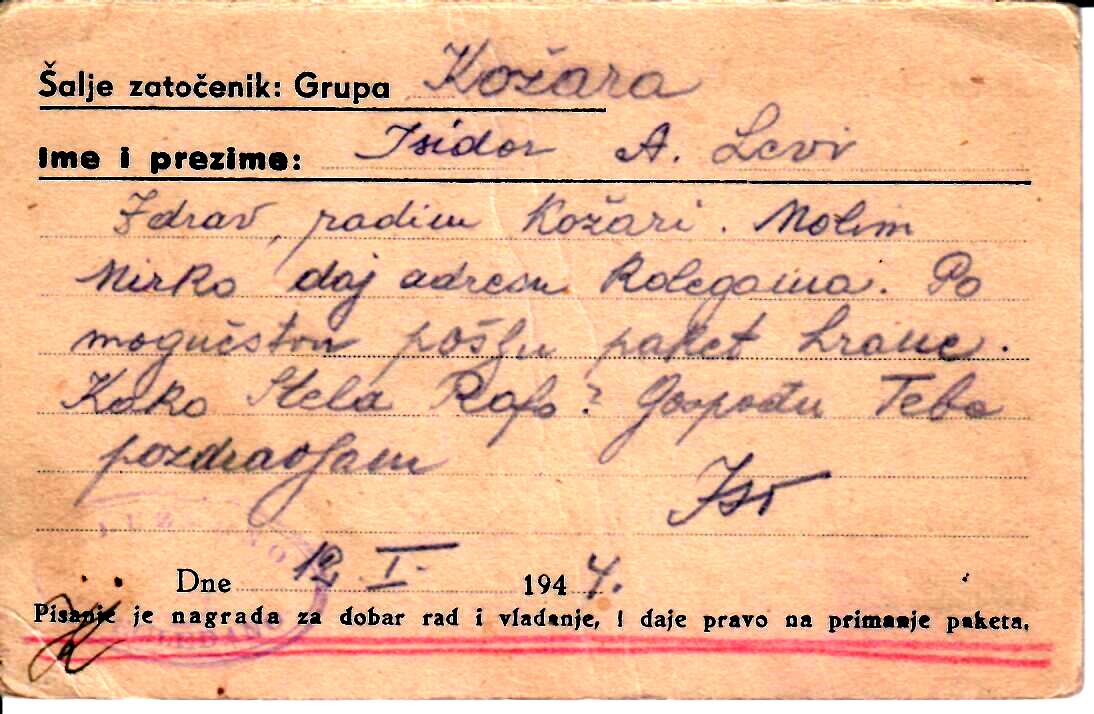 Šalje zatočenik: Grupa Kožara
Ime i prezime: Isidor A. Levi
Zdrav, radim Kožari. Molim
Mirko daj adresu kolegama. Po
mogućstvu pošlju paket hrane.
Kako Stela Rafo? Gospođu Tebe
pozdravljam
Iso
Dne 12 I. 1944.
Pisanje je nagrada za dobar rad i vladanje, i daje pravo na primanje paketa.